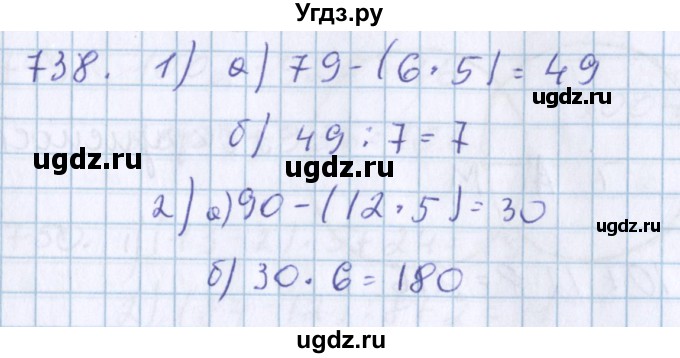 Угдз.ру
738. 1) а) 79-(6·5)=49
ugdz.ru
ugdz.ru
б) 49:7=7
ugdz.ru
ugdz.ru
2) а) 90-(12·5)=30
ugdz.ru
ugdz.ru
б) 30·6=180
ugdz.ru